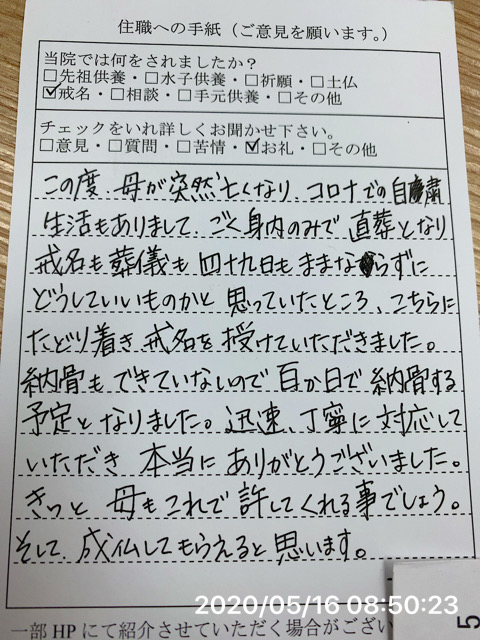 住職への手紙（ご意見を願います。）
当院では何をされましたか？
□先祖供養・□水子供養・□祈願・□土仏
☑戒名・□相談・□手元供養・□その他
チェックをいれ詳しくお聞かせ下さい。
□意見・□質問・□苦情・☑お礼・□その他
この度、母が突然亡くなり、コロナでの自粛
生活もありまして、ごく身内のみで直葬となり
戒名も葬儀も四十九日もままならずに
どうしていいものかと思っていたところ、こちらに
たどり着き戒名を授けていただきました。
納骨もできていないので百か日で納骨する
予定となりました。迅速、丁寧に対応して
いただき本当にありがとうございました。
きっと母もこれで許してくれる事でしょう。
そして、成仏してもらえると思います。
2020/05/16 08:50:23
一部HPにて紹介させていただく場合がござい
5